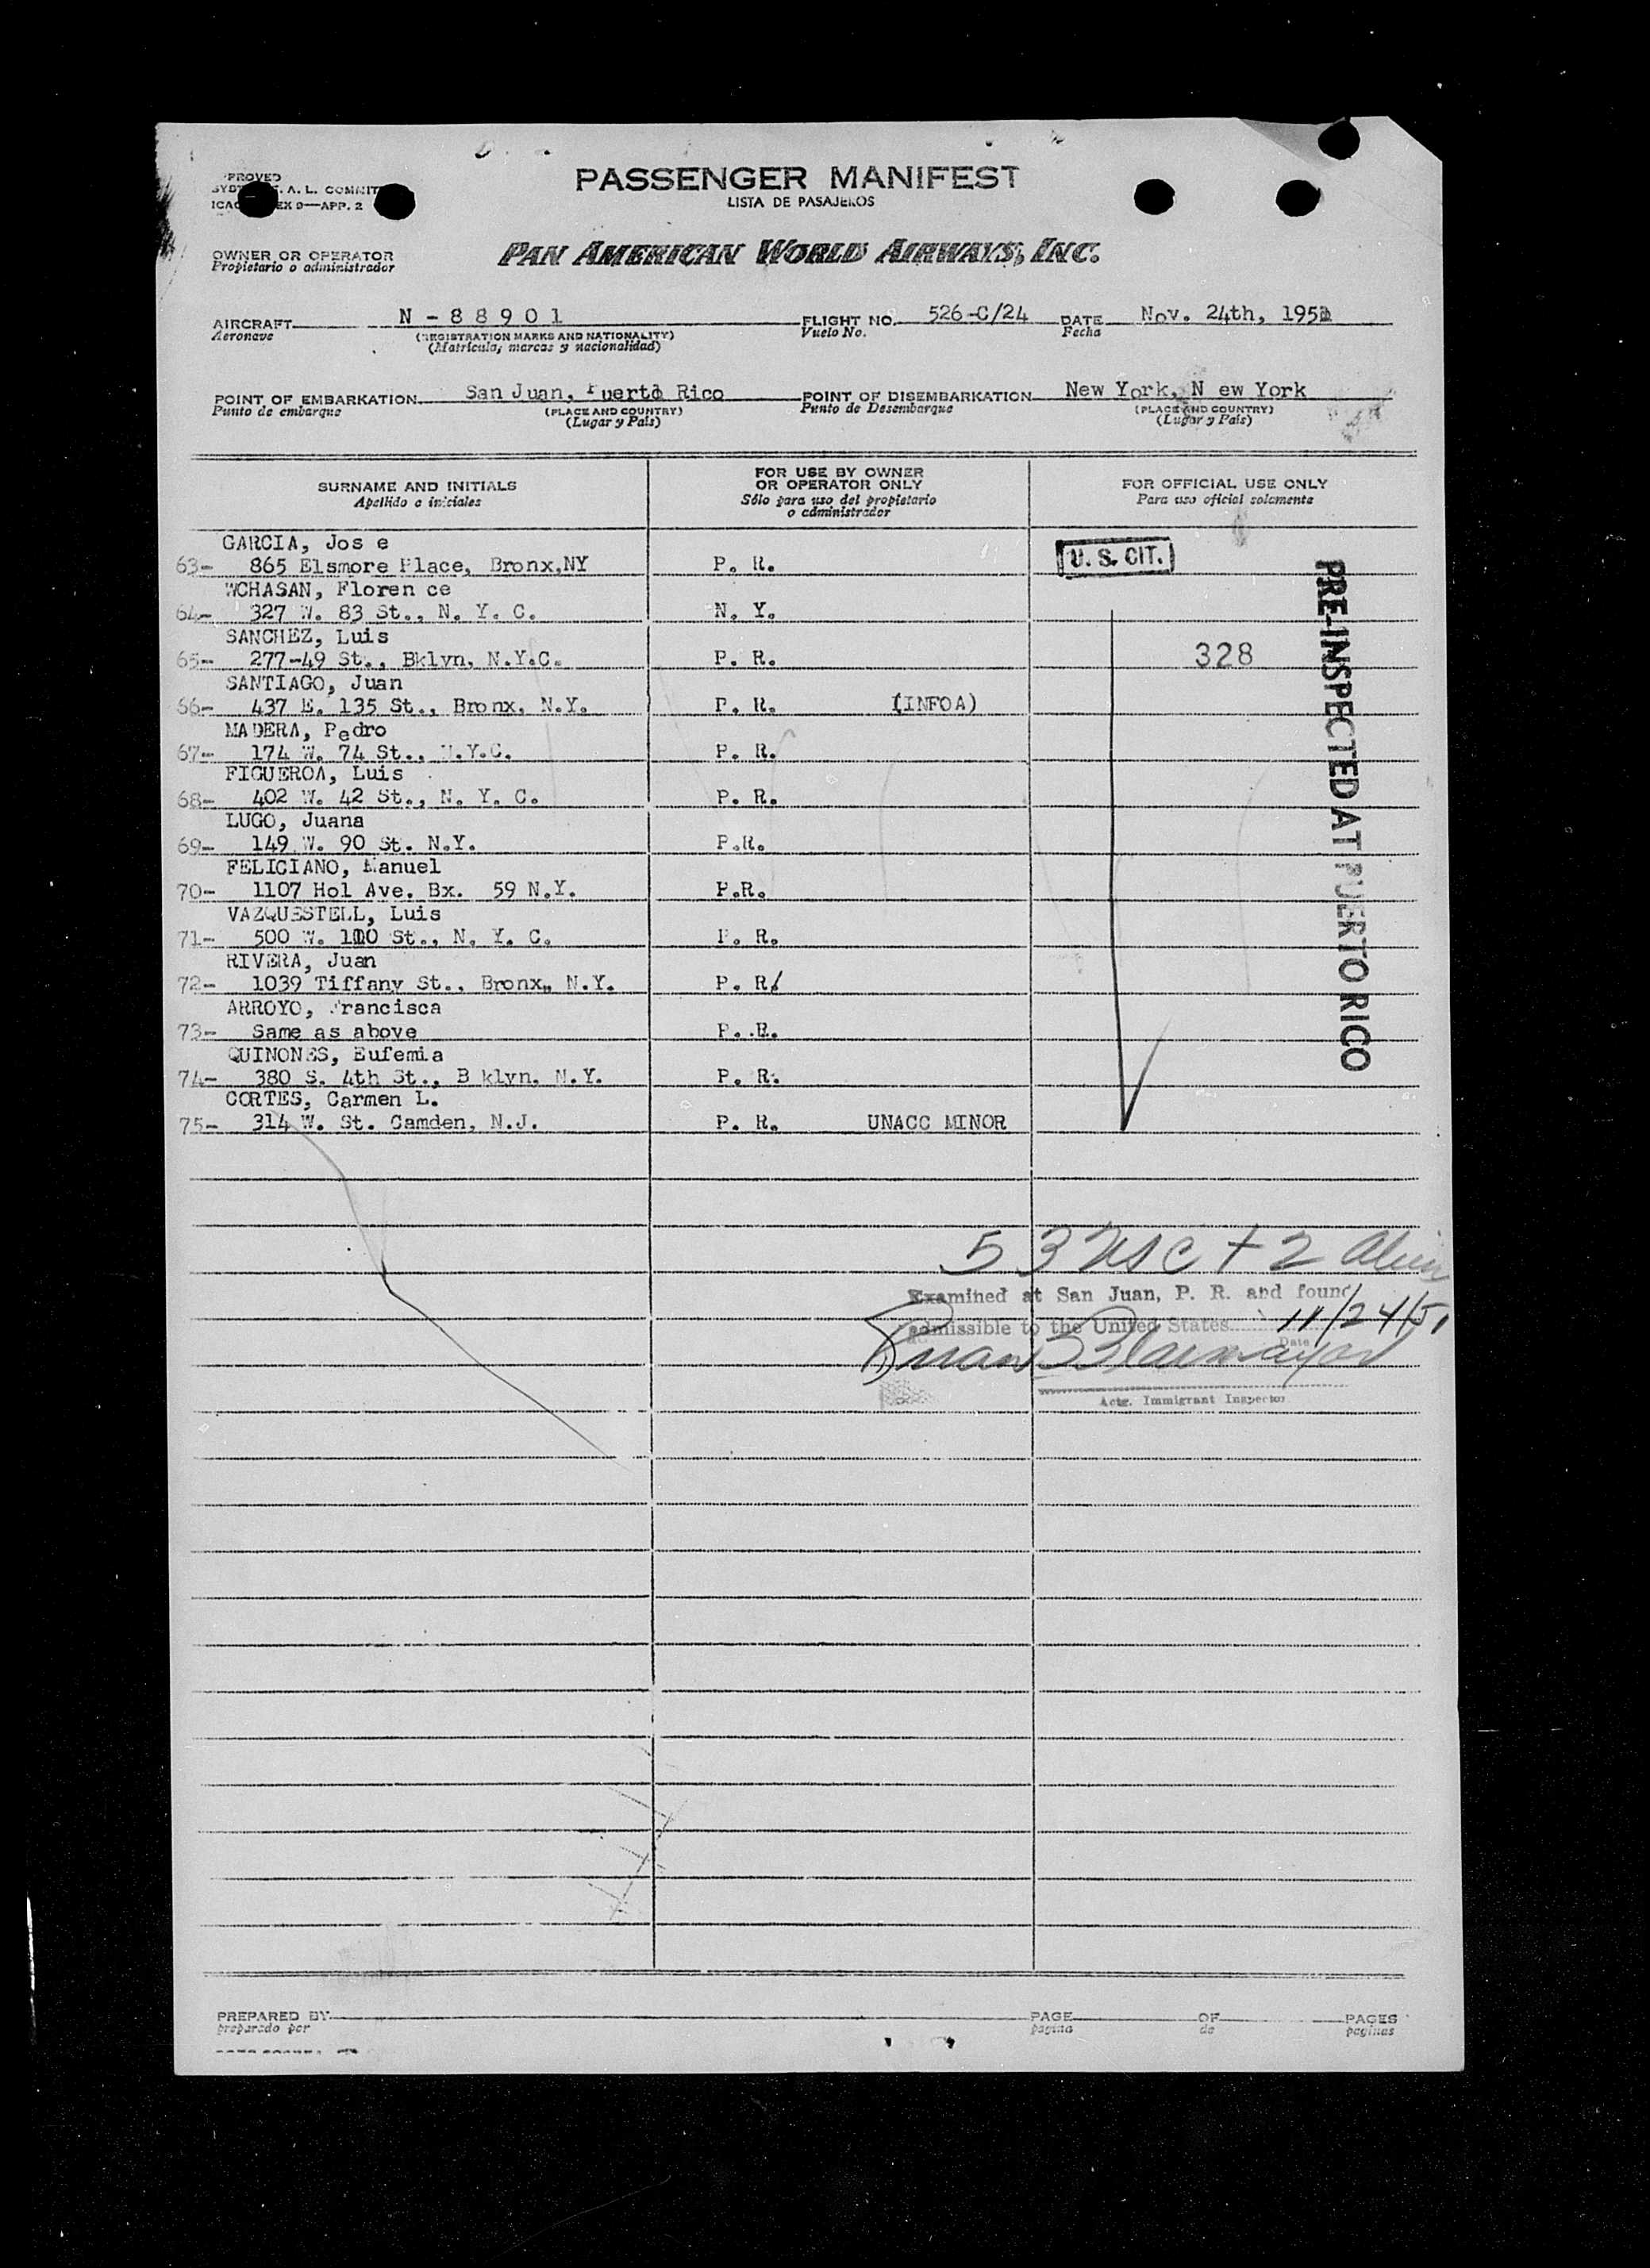 PASSENGER MANIFEST
LISTA DE PASAJEROS
PROVED
A. L. COMMIT
ICAO EX 9—APP. 2
OWNER OR OPERATOR
Propietario o administrador
PAN AMERICAN WORLD AIRWAYS, INC.
AIRCRAFT N - 8 8 9 0 1 FLIGHT NO. 526-C/24 DATE Nov. 24th, 195
Aeronave (REGISTRATION MARKS AND NATIONALITY) Vuelo No. Fecha
(Matricula, marcas y nacionalidad)
POINT OF EMBARKATION San Juan, Puerto Rico POINT OF DISEMBARKATION New York, N ew York
Punto de embarque (PLACE AND COUNTRY) Punto de Desembarque (PLACE AND COUNTRY)
(Lugar y Pais) (Lugar y Pais)
SURNAME AND INITIALS
Apellido e iniciales
FOR USE BY OWNER
OR OPERATOR ONLY
Sólo para uso del propietario
o administrador
FOR OFFICIAL USE ONLY
Para uso oficial solamente
GARCIA, Jos e
63- 865 Elsmore Place, Bronx,NY P. R. U. S. CIT.
WCHASAN, Floren ce
64- 327 W. 83 St., N. Y. C. N. Y.
SANCHEZ, Luis
65- 277-49 St., Bklyn, N.Y.C. P. R. 328
SANTIAGO, Juan
66- 437 E. 135 St., Bronx, N.Y. P. R. (INFOA)
MADERA, Pedro
67- 174 W. 74 St., N.Y.C. P. R.
FIGUEROA, Luis
68- 402 W. 42 St., N. Y. C. P. R.
LUGO, Juana
69- 149 W. 90 St. N.Y. P.R.
FELICIANO, Manuel
70- 1107 Hol Ave. Bx. 59 N.Y. P.R.
VAZQUESTELL, Luis
71- 500 W. 110 St., N. Y. C. P. R.
RIVERA, Juan
72- 1039 Tiffany St., Bronx, N.Y. P. R.
ARROYO, Francisca
73- Same as above P. R.
QUINONES, Eufemia
74- 380 S. 4th St., B klyn, N.Y. P. R.
CORTES, Carmen L.
75- 314 W. St. Camden, N.J. P. R. UNACC MINOR
PRE-INSPECTED AT PUERTO RICO
53 USC + 2 alien
Examined at San Juan, P. R. and found
admissible to the United States 11/24/51
Date
Juan
Actg. Immigrant Inspector
PREPARED BY PAGE OF PAGES
preparado por pagina de paginas